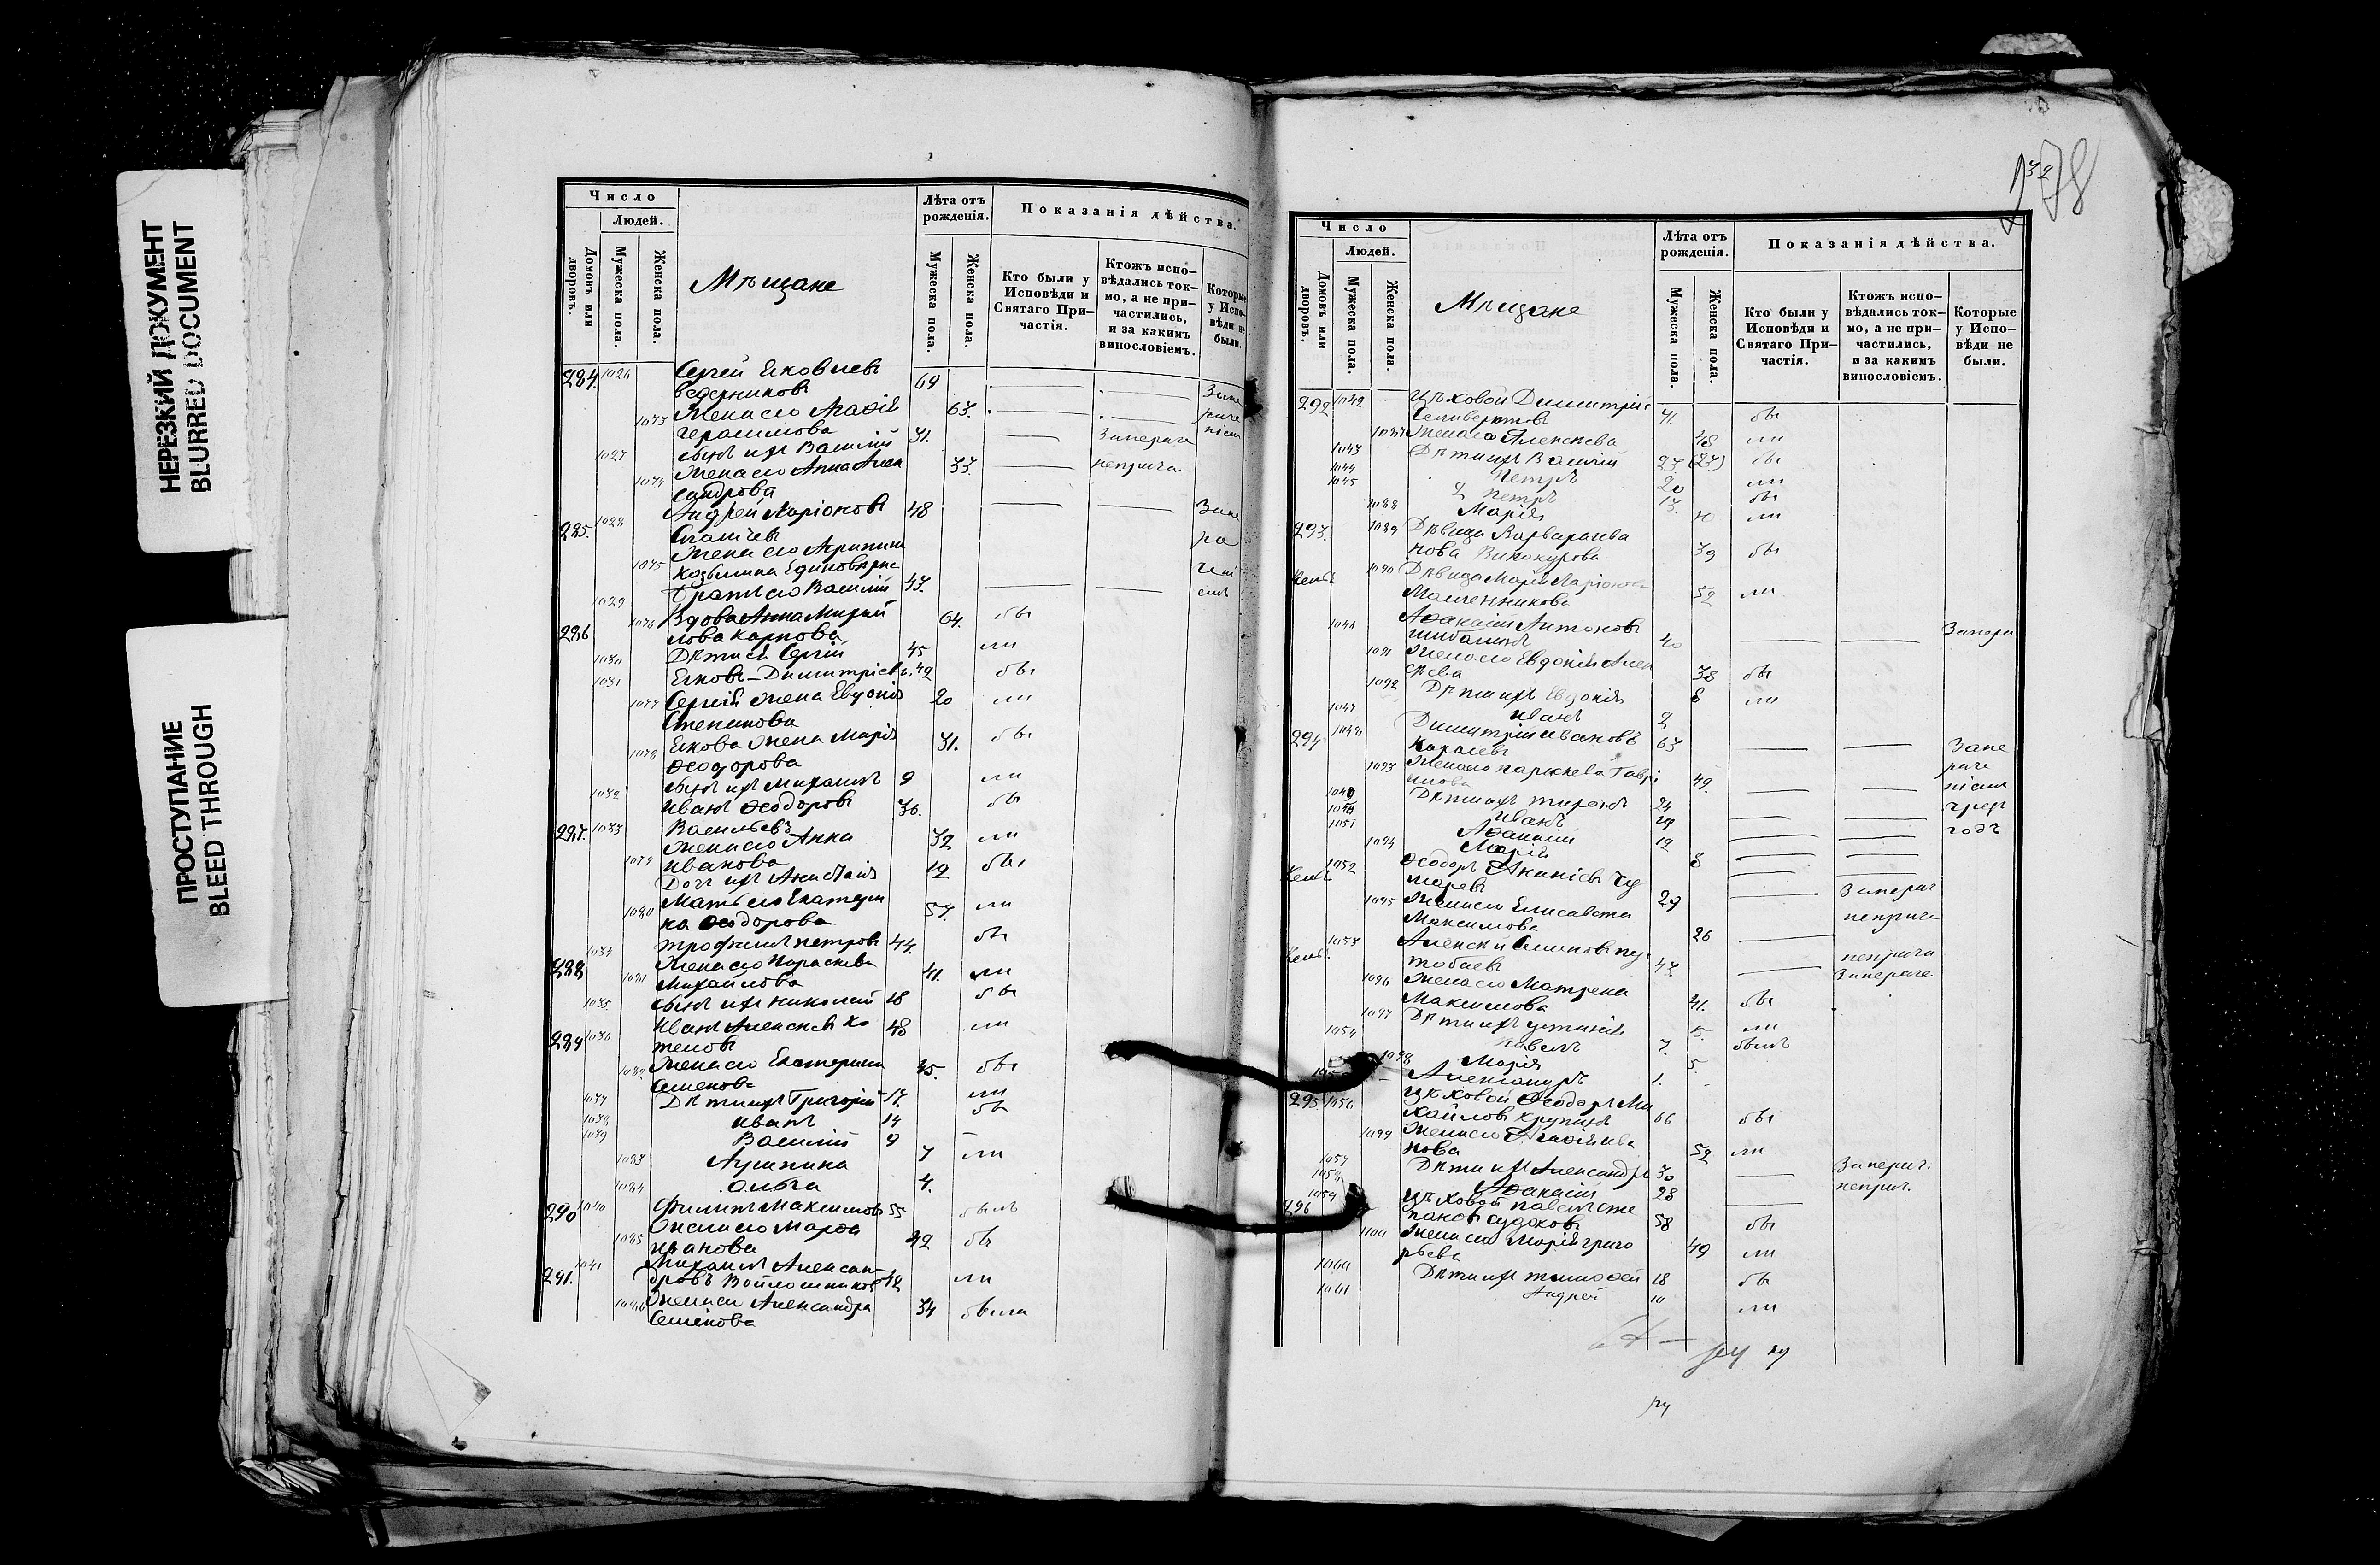 НЕРЕЗКИЙ ДОКУМЕНТ
BLURRED DOCUMENT
ПРОСТУПАНИЕ
BLEED THROUGH
Число
Людей.
Домовъ или дворовъ.
Мужеска пола.
Женска пола.
Мѣщане
Лѣта отъ рожденія.
Мужеска пола.
Женска пола.
Показанія дѣйства.
Кто были у Исповѣди и Святаго При–частія.
Ктожъ испо–вѣдались ток–мо, а не при–частились, и за какимъ винословіемъ.
Которые у Испо–вѣди не были.
284. 1026 Сергей Яковлевъ
Ведерниковъ 69
1073 Жена его Агафія 63.
Герасимова
1027 Сынъ ихъ Василій 31.
1074 Жена его Анна Алек 33. неприча
сандрова
285. 1028 Андрей Ларіоновъ 48
1075 Жена его Агрипина
Козьмина Единовѣрка
1029 Братъ его Василій 43.
286 1076 Вдова Анна Михай 64. бы
лова Карпова
1030 Дѣти ея Сергій 45 ли
1031 Яковъ Димитріевъ. 42 бы
1077 Сергія жена Евдокія 20 ли
Степанова
1078 Якова жена Марія 31. бы
Ѳеодорова
1032 Сынъ ихъ Михаилъ 9 ли
287. 1033 Иванъ Ѳеодоровъ 36. бы
Васильевъ
Жена его Анна 32 ли
1079 Иванова
Дочь ихъ Анастасія 12 бы
1080 Мать его Екатери 57. ли
на Ѳеодорова
288 1034 Трофимъ Петровъ 44. бы
1081 Жена его Параскева 41. ли
Михайлова
1035. Сынъ ихъ Николай 18 бы
289 1036 Иванъ Алексѣевъ Ко 48 ли
теловъ
1082 Жена его Екатерина 45. бы
Семенова
1037 Дѣти ихъ Григорій 17. ли
1038 Иванъ 14 бы
1039 Василій 9
1083 Агрипина 7 ли
1084 Ольга 4.
290 1040 Филипъ Максимовъ 55 былъ
1085 Жена его Марѳа 42 бы
Иванова
291. 1041 Михаилъ Алексан-
дровъ Войлошниковъ 42 ли
1086 Жена его Александра 34 была
Семенова
278
Число
Людей.
Домовъ или дворовъ.
Мужеска пола.
Женска пола.
Мѣщане
Лѣта отъ рожденія.
Мужеска пола.
Женска пола.
Показанія дѣйства.
Кто были у Исповѣди и Святаго При–частія.
Ктожъ испо–вѣдались ток–мо, а не при–частились, и за какимъ винословіемъ.
Которые у Испо–вѣди не были.
292 1042 Цѣховой Димитрій 41. бы
Селиверстовъ
1087 Жена его Алексѣева 48 ли
1043 Дѣти ихъ Василій 23 (23) бы
1044 Петръ 20 ли
1045 2 Петръ 13. бы
1088 Марія 10 ли
293. 1089 Дѣвица Варвара Ива
нова Винокурова 39 бы
1090 Дѣвица Марія Ларіонова
52 ли
Аѳанасій Антоновъ
Шибалинъ 40
1091 Жена его Евдокія Алек
сѣева 38 бы
1092 Дѣти ихъ Евдокія 8 ли
1047 Иванъ 2
294 1048 Димитрій Ивановъ 63
1093 Жена его Параскева Гаврі 49.
лова
Дѣти ихъ 24
Иванъ
1051 Аѳанасій 12
1094 Марія 8
1052 Ѳеодоръ Ананіевъ
29
1095 Жена его Елисавета неприча
Максимова 26
1053 Алексѣй Семеновъ
43. неприча
1096 Жена его Матрена
Максимова 41. бы
1097 Дѣти ихъ Устинія 5. ли
1054 Павелъ 7. былъ
1098 Марія 5.
Александръ 1.
295 1056 Цѣховой Ѳеодоръ Ми
хайловъ Крупинъ 66 бы
1099 Жена его Агафія Ива
нова 52 ли
1057 Дѣти ихъ Александръ 30
1058 Аѳанасій 28 неприч.
296 1059 Цѣховой Павелъ Сте
пановъ Судаковъ 58 бы
1100 Жена его Марія Григо
рьева 49 ли
1060 Дѣти ихъ Тимоѳей 18 бы
1061 Андрей 10 ли